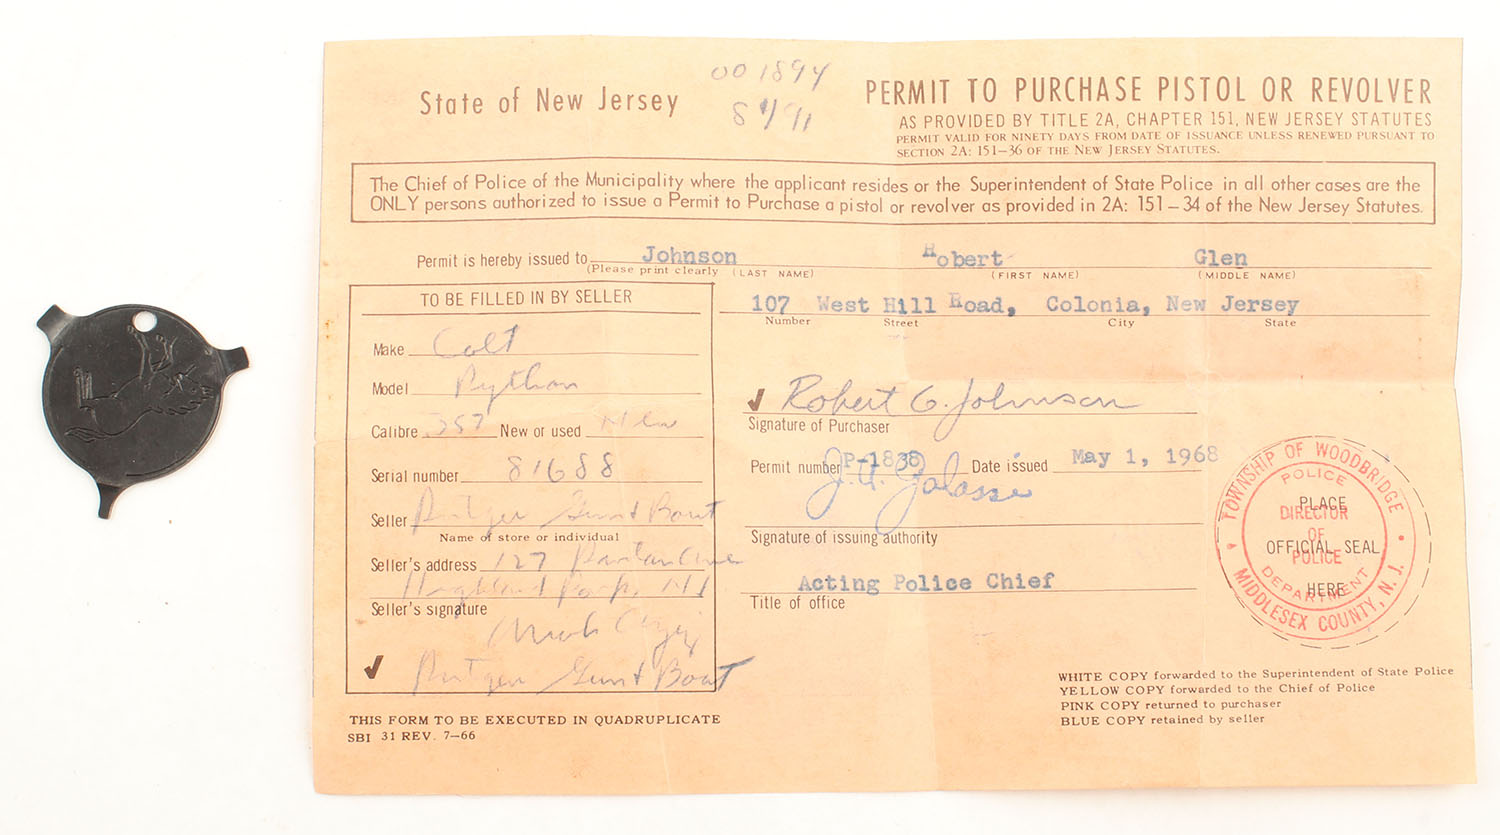 State of New Jersey
001894
PERMIT TO PURCHASE PISTOL OR REVOLVER
AS PROVIDED BY TITLE 2A, CHAPTER 151, NEW JERSEY STATUTES
PERMIT VALID FOR NINETY DAYS FROM DATE OF ISSUANCE UNLESS RENEWED PURSUANT TO
SECTION 2A: 151-36 OF THE NEW JERSEY STATUTES.
The Chief of Police of the Municipality where the applicant resides or the Superintendent of State Police in all other cases are the
ONLY persons authorized to issue a Permit to Purchase a pistol or revolver as provided in 2A: 151-34 of the New Jersey Statutes.
Permit is hereby issued to Johnson Robert Glen
(Please print clearly (LAST NAME) (FIRST NAME) (MIDDLE NAME)
107 West Hill Road, Colonia, New Jersey
Number Street City State
TO BE FILLED IN BY SELLER
Make Colt
Model Python
Calibre .357 New or used New
Serial number 81688
Seller Rutger Gun & Boat
Name of store or individual
Seller's address 127 Raritan Ave
Highland Park, NJ
Seller's signature
Rutger Gun & Boat
Robert G. Johnson
Signature of Purchaser
Permit number P-1838 Date issued May 1, 1968
Signature of issuing authority
Acting Police Chief
Title of office
TOWNSHIP OF WOODBRIDGE
POLICE
DIRECTOR
OF
POLICE
DEPARTMENT
MIDDLESEX COUNTY, N. J.
PLACE
OFFICIAL SEAL
HERE
WHITE COPY forwarded to the Superintendent of State Police
YELLOW COPY forwarded to the Chief of Police
PINK COPY returned to purchaser
BLUE COPY retained by seller
THIS FORM TO BE EXECUTED IN QUADRUPLICATE
SBI 31 REV. 7-66